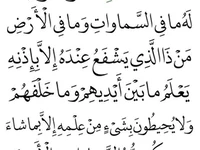 لَهُ مَا فِي السَّمَاوَاتِ وَمَا فِي الْأَرْضِ
مَنْ ذَا الَّذِي يَشْفَعُ عِنْدَهُ إِلَّا بِإِذْنِهِ
يَعْلَمُ مَا بَيْنَ أَيْدِيهِمْ وَمَا خَلْفَهُمْ
وَلَا يُحِيطُونَ بِشَيْءٍ مِنْ عِلْمِهِ إِلَّا بِمَا شَاءَ